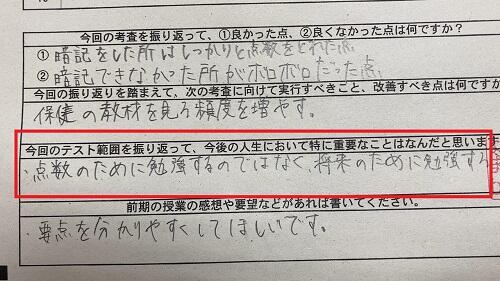 今回の考査を振り返って、①良かった点、②良くなかった点は何ですか?
①暗記をした所はしっかりと点数をとれた点
②暗記できなかった所がボロボロだった点.
今回の振り返りを踏まえて、次の考査に向けて実行すべきこと、改善すべき点は何ですか
保健の教材を見る頻度を増やす。
今回のテスト範囲を振り返って、今後の人生において特に重要なことはなんだと思いま
・点数のために勉強するのではなく、将来のために勉強する
前期の授業の感想や要望などがあれば書いてください。
・要点を分かりやすくしてほしいです。